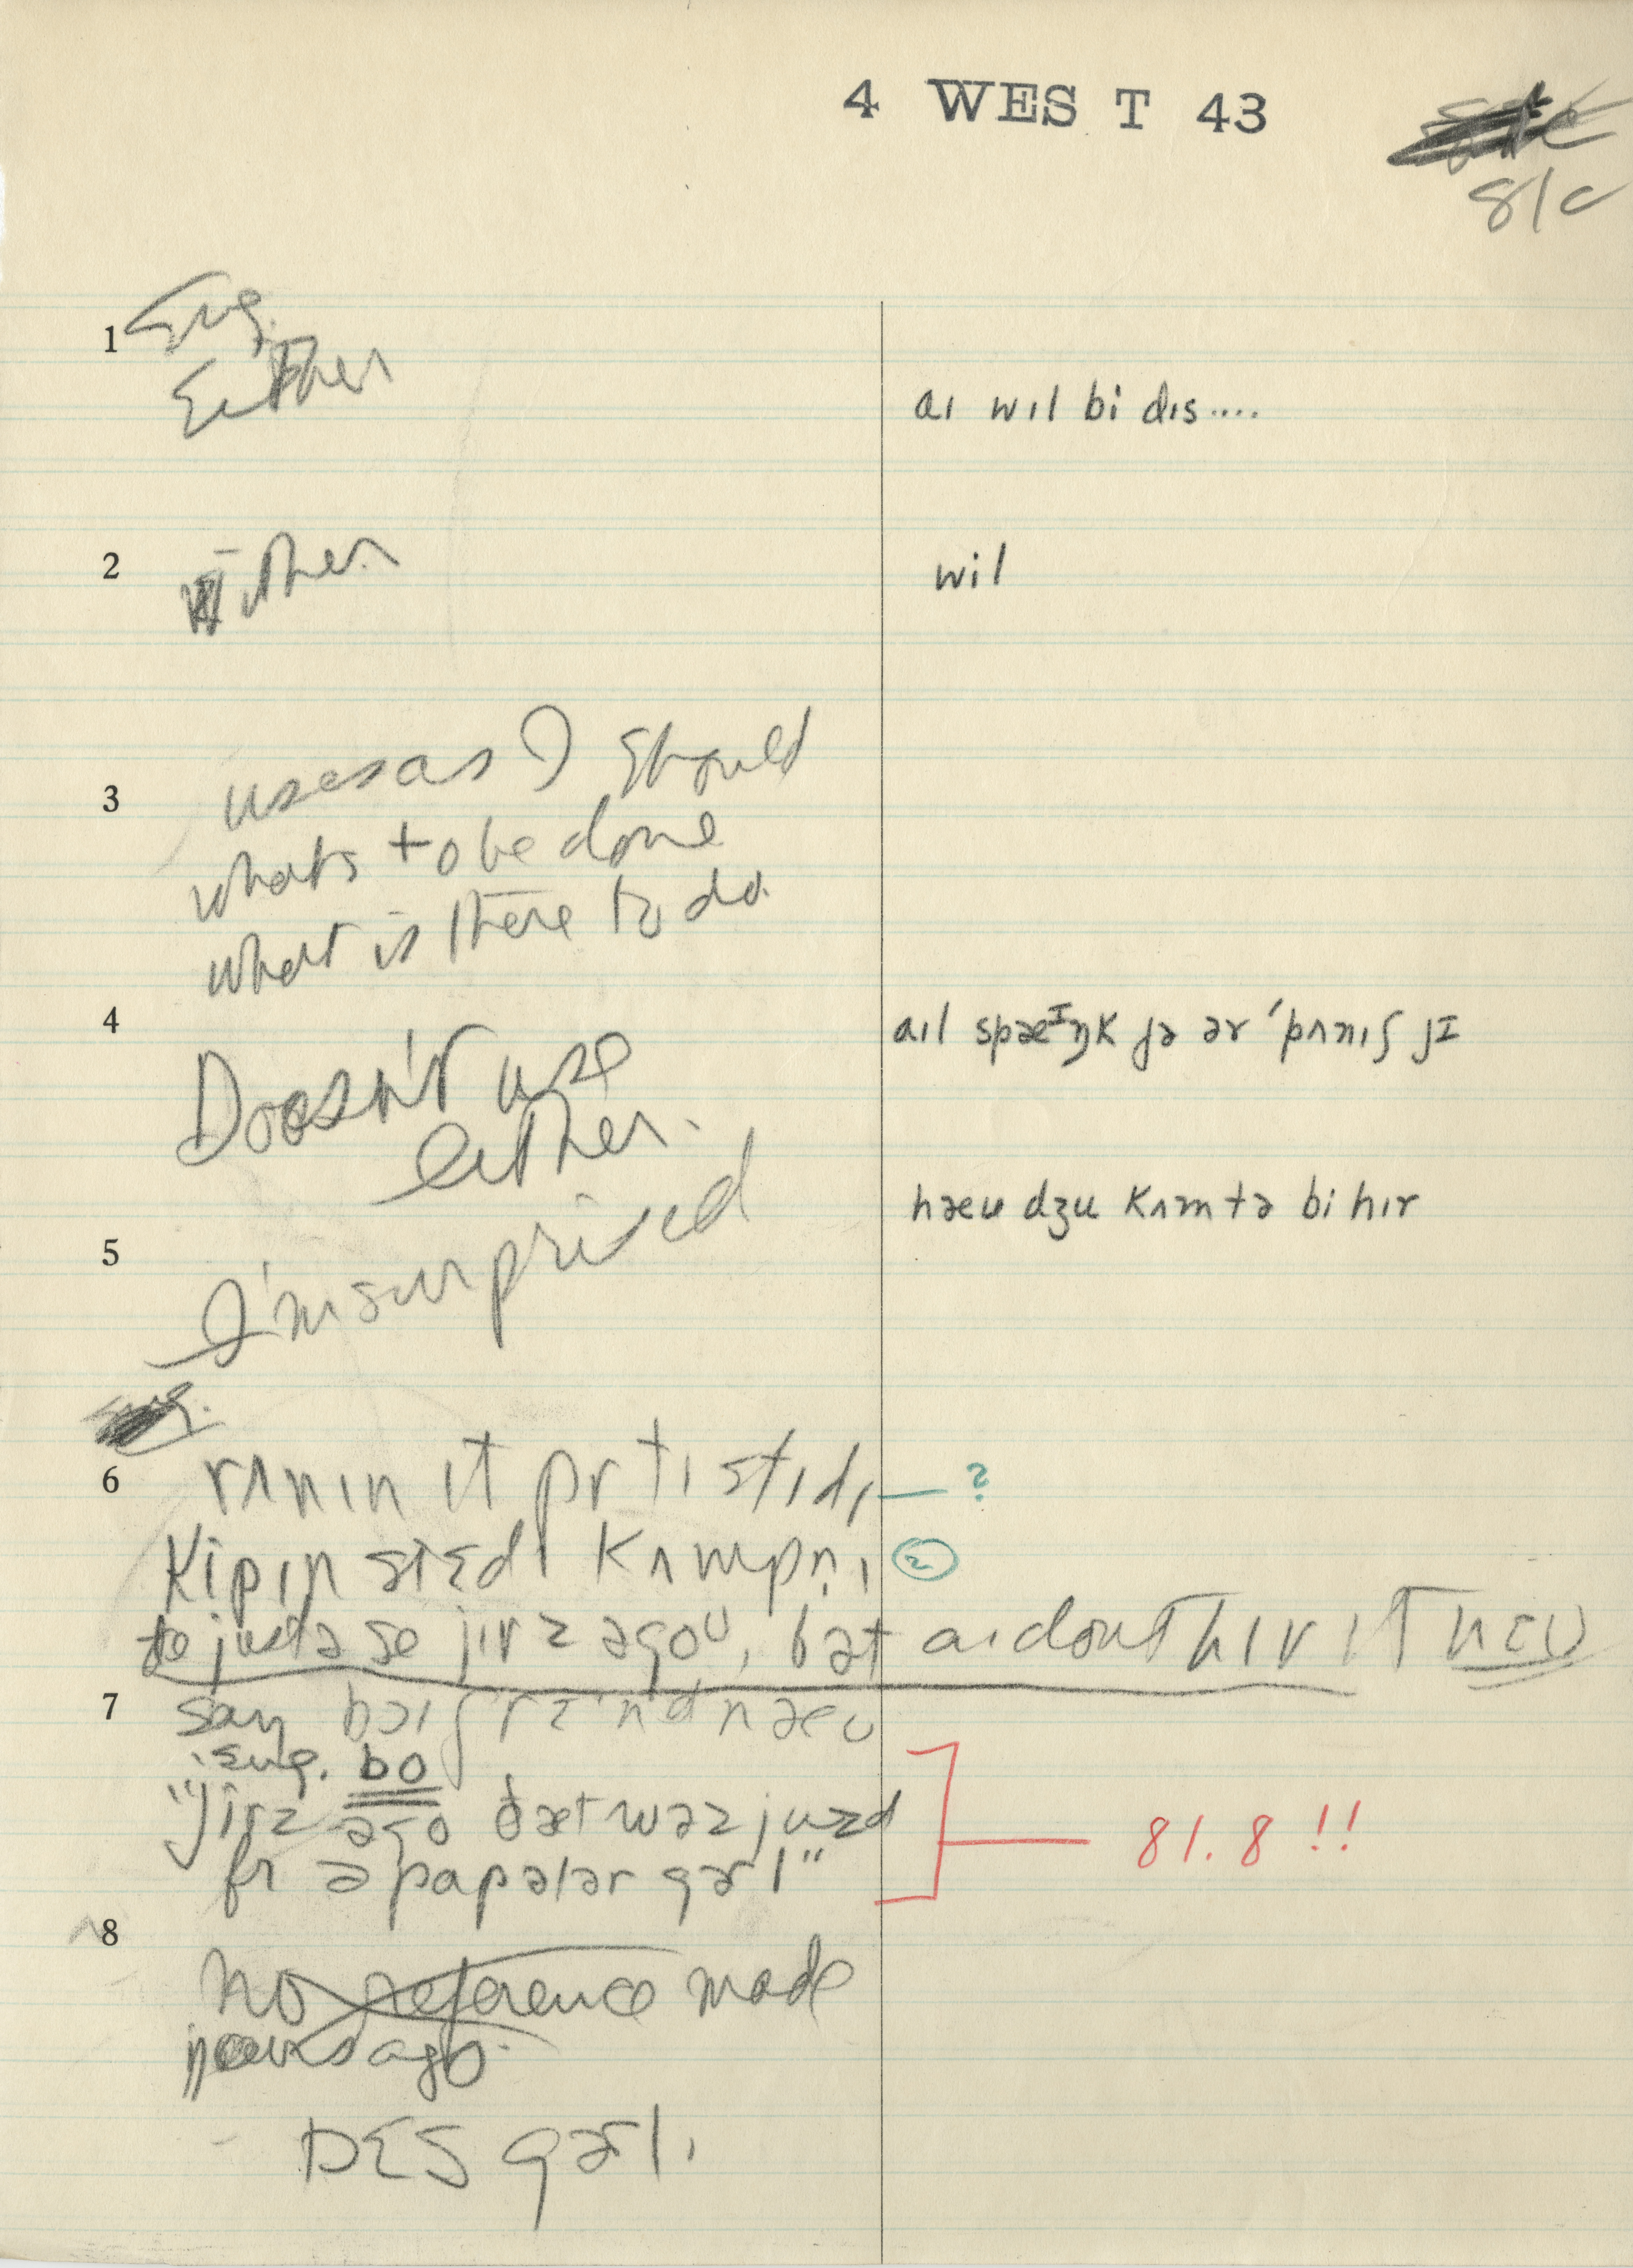 4 WES T 43
81c
1 Eng.
Either
aɪ wɪl bi dɪs....
2 Either
wil
3 uses as I should
whats to be done
what is there to do.
4 aɪl spæᴵŋk jə ər ˈpʌnɪʃ jɪ
Doesn't use
either.
hæu dʒu kʌm tə bi hɪr
5 I'm surprised
6 rʌnɪn ɪt prtɪ stɪdɪ — ?
kipɪn stɛdɪ kʌmpn̩ɪ 2
justə se jɪrz əgoʊ, bət aɪ dont hɪr ɪt næʊ
7 say bɔɪfrɛnd næʊ
Eng. bo
"jɪrz əgo ðæt wəz juzd
fr ə papələr gərl"
81.8 !!
8 no reference made
years ago.
DES gərl.